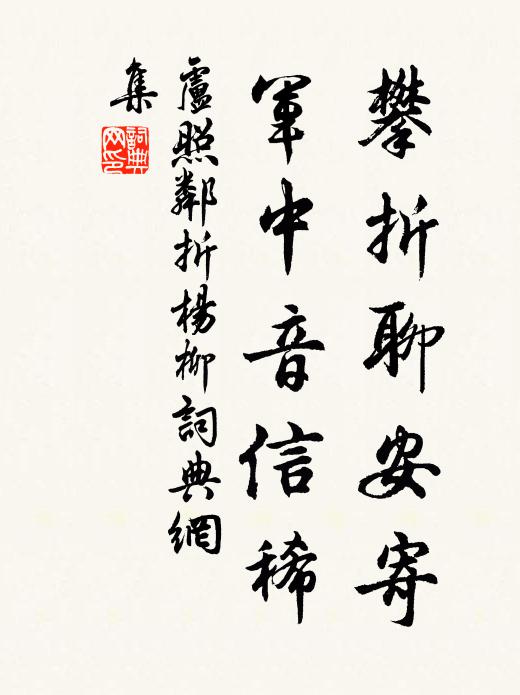 攀折聊安寄
軍中音信稀
盧照鄰折楊柳詞典網
集
詞典網印